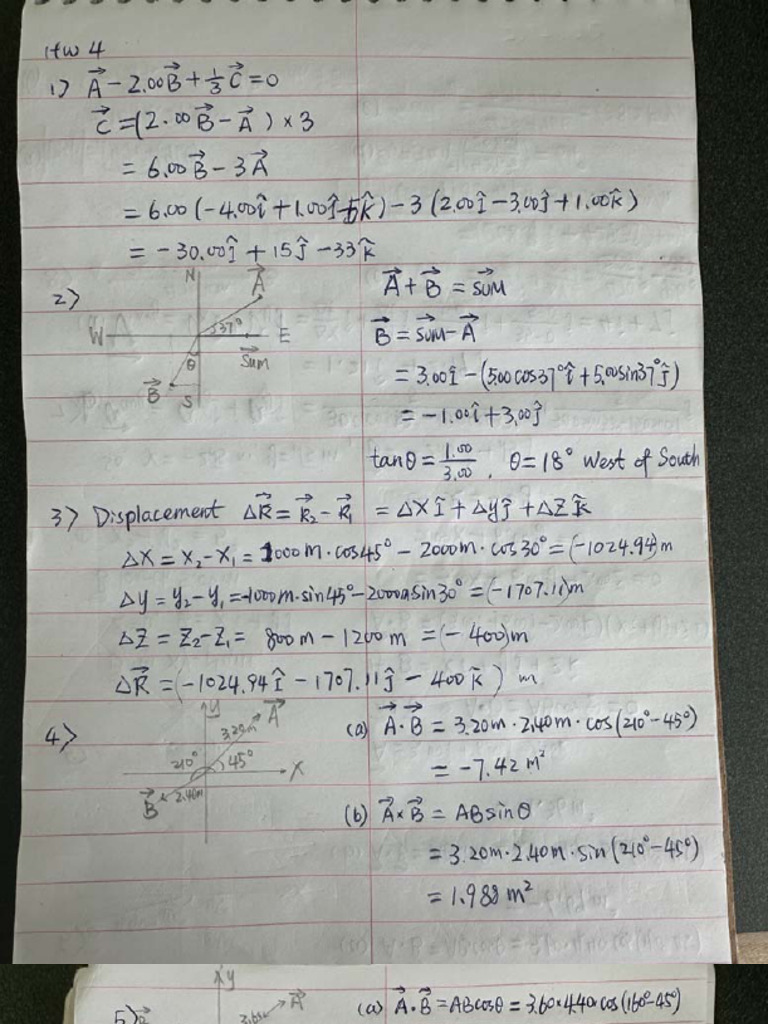 Hw 4
1) A⃗ - 2.00B⃗ + 1/3 C⃗ = 0
C⃗ = (2.00B⃗ - A⃗) × 3
= 6.00B⃗ - 3A⃗
= 6.00(-4.00î + 1.00ĵ - 5k̂) - 3(2.00î - 3.00ĵ + 1.00k̂)
= -30.00î + 15ĵ - 33k̂
2)
N
A⃗
W
37°
E
θ
sum⃗
B⃗
S
A⃗ + B⃗ = sum⃗
B⃗ = sum⃗ - A⃗
= 3.00î - (5.00cos37°î + 5.00sin37°ĵ)
= -1.00î + 3.00ĵ
tanθ = 1.00/3.00 , θ = 18° West of South
3) Displacement ΔR⃗ = R⃗₂ - R⃗₁ = ΔXî + Δyĵ + ΔZk̂
ΔX = X₂ - X₁ = 1000m·cos45° - 2000m·cos30° = (-1024.94)m
Δy = y₂ - y₁ = -1000m·sin45° - 2000m sin30° = (-1707.11)m
ΔZ = Z₂ - Z₁ = 800m - 1200m = (-400)m
ΔR⃗ = (-1024.94î - 1707.11ĵ - 400k̂) m
4)
y
A⃗
3.20m
210°
45°
X
B⃗
2.40m
(a) A⃗·B⃗ = 3.20m·2.40m·cos(210°-45°)
= -7.42 m²
(b) A⃗×B⃗ = ABsinθ
= 3.20m·2.40m·sin(210°-45°)
= 1.988 m²
y
5)
A⃗
(a) A⃗·B⃗ = ABcosθ = 3.60×4.40×cos(160°-45°)